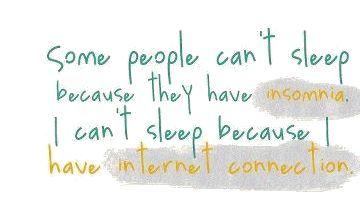 Some people can't sleep
because they have insomnia.
I can't sleep because I
have internet connection.